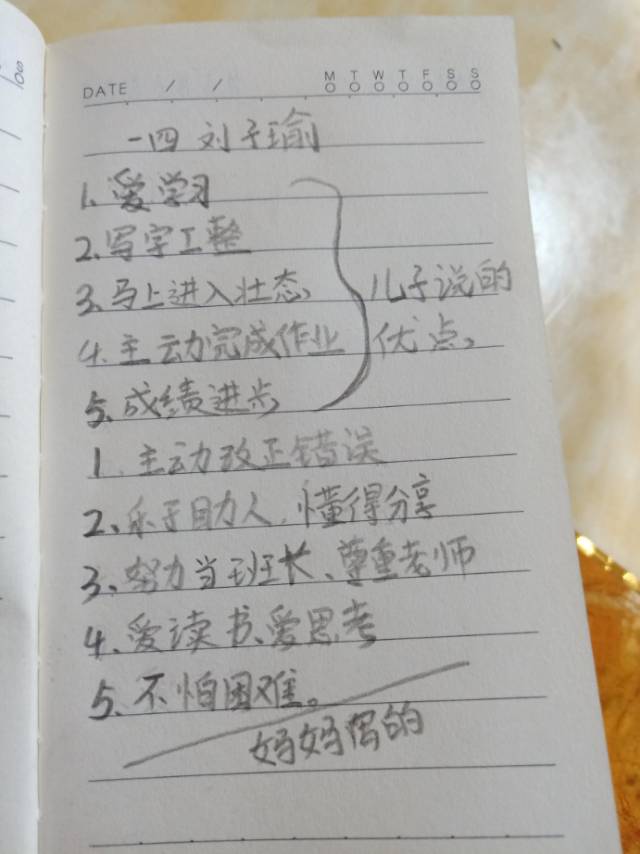 DATE / / M T W T F S S
一四 刘子瑜
1. 爱学习
2. 写字工整
3. 马上进入壮态、
4. 主动完成作业
5. 成绩进步
儿子说的
优点。
1. 主动改正错误
2、乐于助人,懂得分享
3、努力当班长、尊重老师
4、爱读书、爱思考
5、不怕困难。
妈妈写的